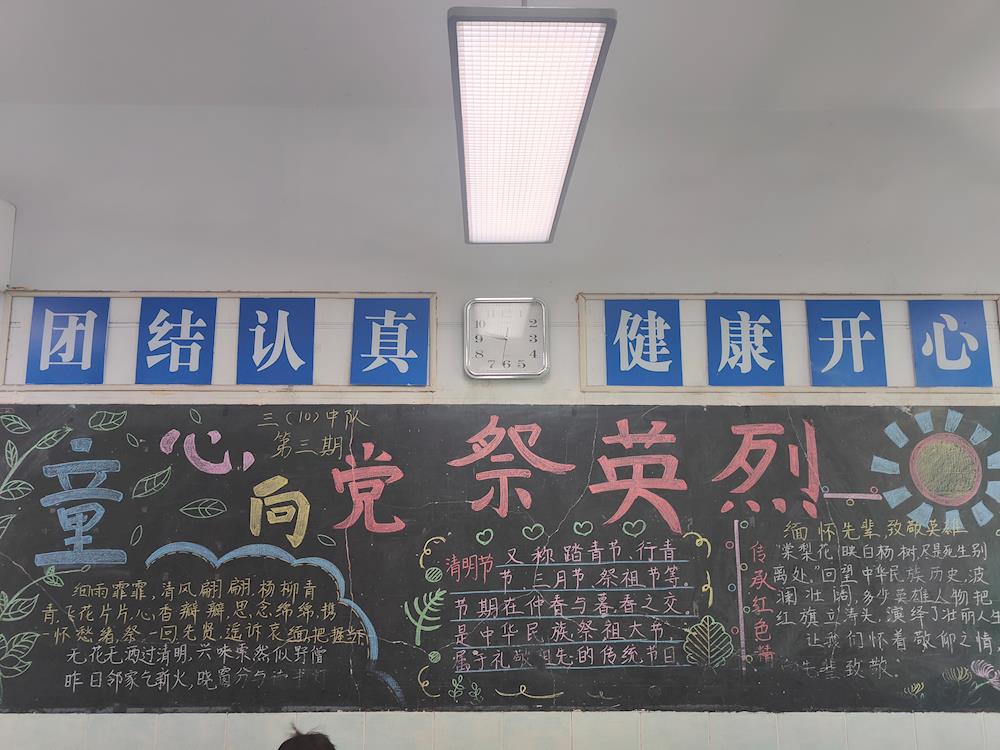 团结认真
健康开心
10 9 8 7 6 5 4 3 2
三（10）中队
第三期
童心向党 祭英烈
细雨霏霏,清风翩翩,杨柳青
青,飞花片片,心香瓣瓣,思念绵绵,携
一怀愁绪,祭一回先贤,遥诉哀缅,把握
无花无
过清明,兴味
然似野僧
昨日邻家乞新火,晓窗分与
清明节 又称踏青节,行青
节、三月节、祭祖节等。
节期在仲春与暮春之交。
是中华民族祭祖大节,
属于礼敬祖先的传统节日
传承红色
缅怀先辈,致敬英雄
棠梨花映白杨树,尽是死生别
离处。"回望中华民族历史,波
澜壮阔,多少英雄人物把
红旗立
头,演绎了壮丽人生
让我们怀着敬仰之情,
先辈致敬。